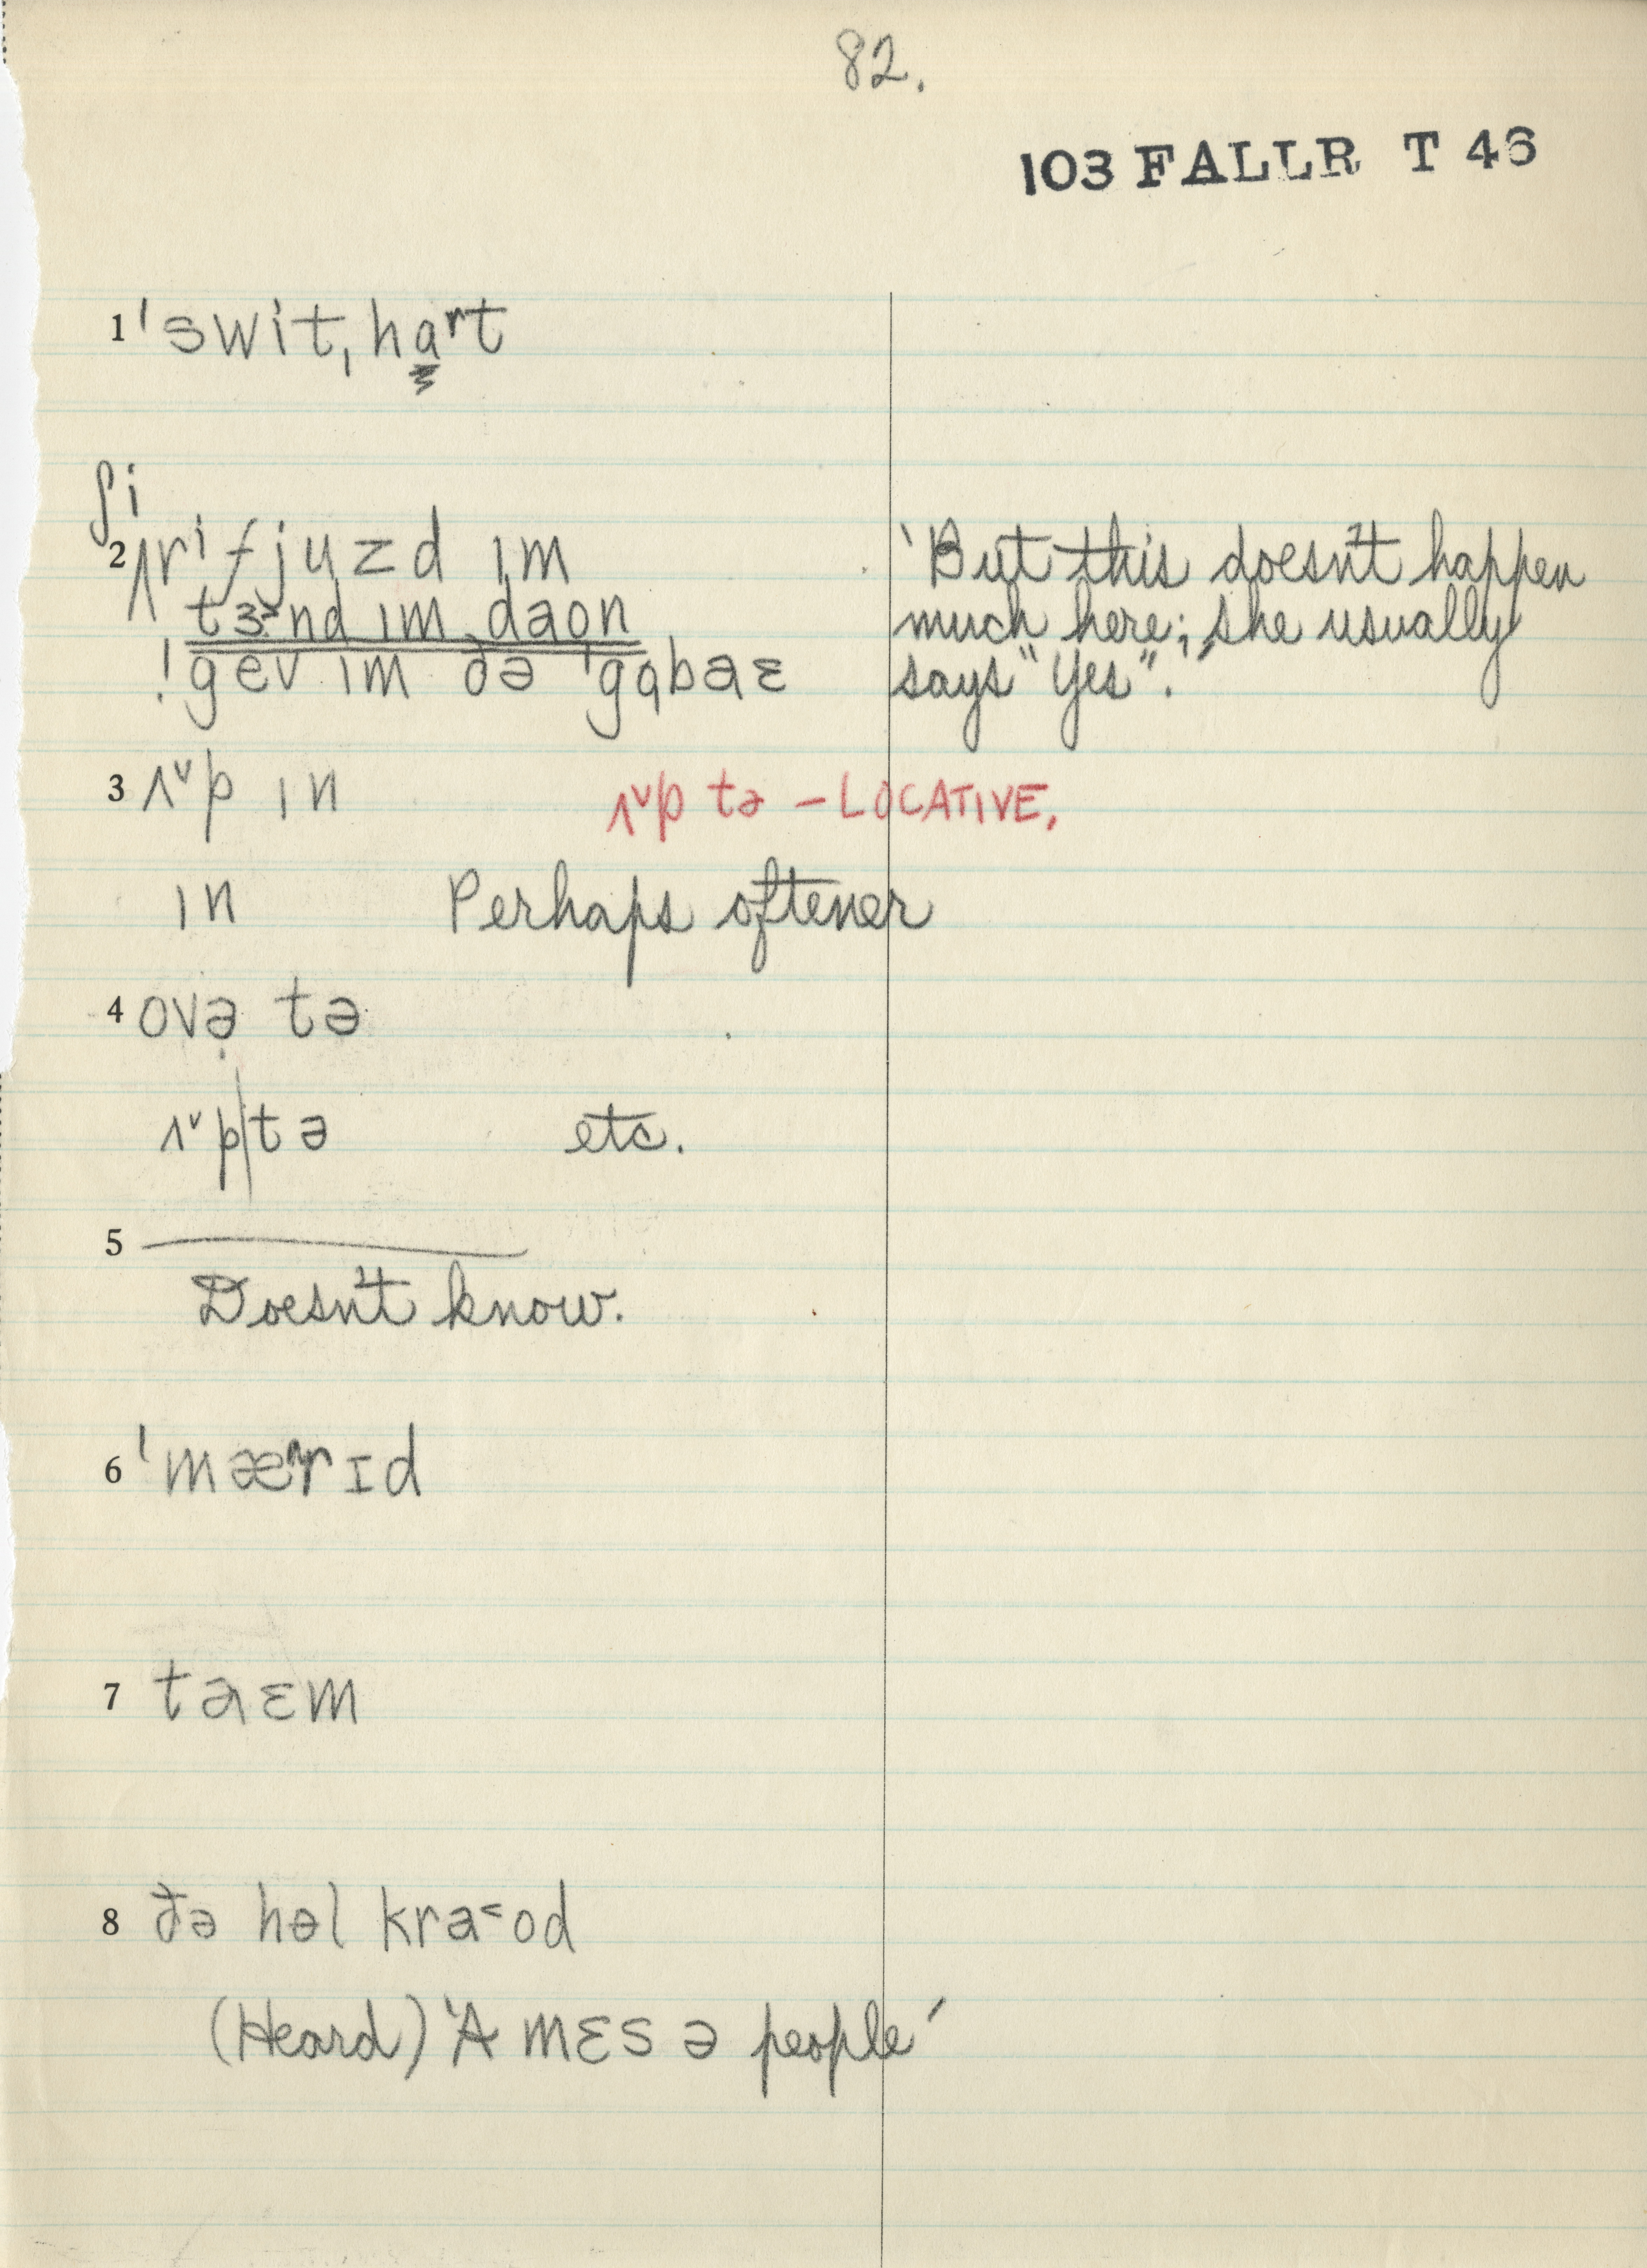 82.
103 FALLR T 46
1 ˈswitˌhɑʳt
ʃi
2 ʌrⁱfjuzd ɪm 'But this doesn't happen
tɜ˞nd ɪm daon much here; she usually
! gev ɪm ðə ˈgɑbaɛ says "Yes".'
3 ʌ˅p ɪn ʌ˅p tə – LOCATIVE,
ɪn Perhaps oftener
4 ovə̣ tə
ʌ˅p|tə etc.
5 ———
Doesn't know.
6 ˈmærɪd
7 taɛm
8 ðə həl kra˂od
(Heard) 'A mɛs ə people'